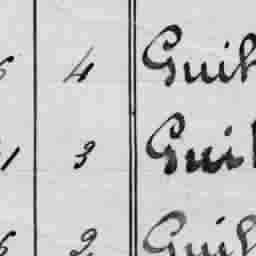 4 Guil
1 3 Guil
2 Guil